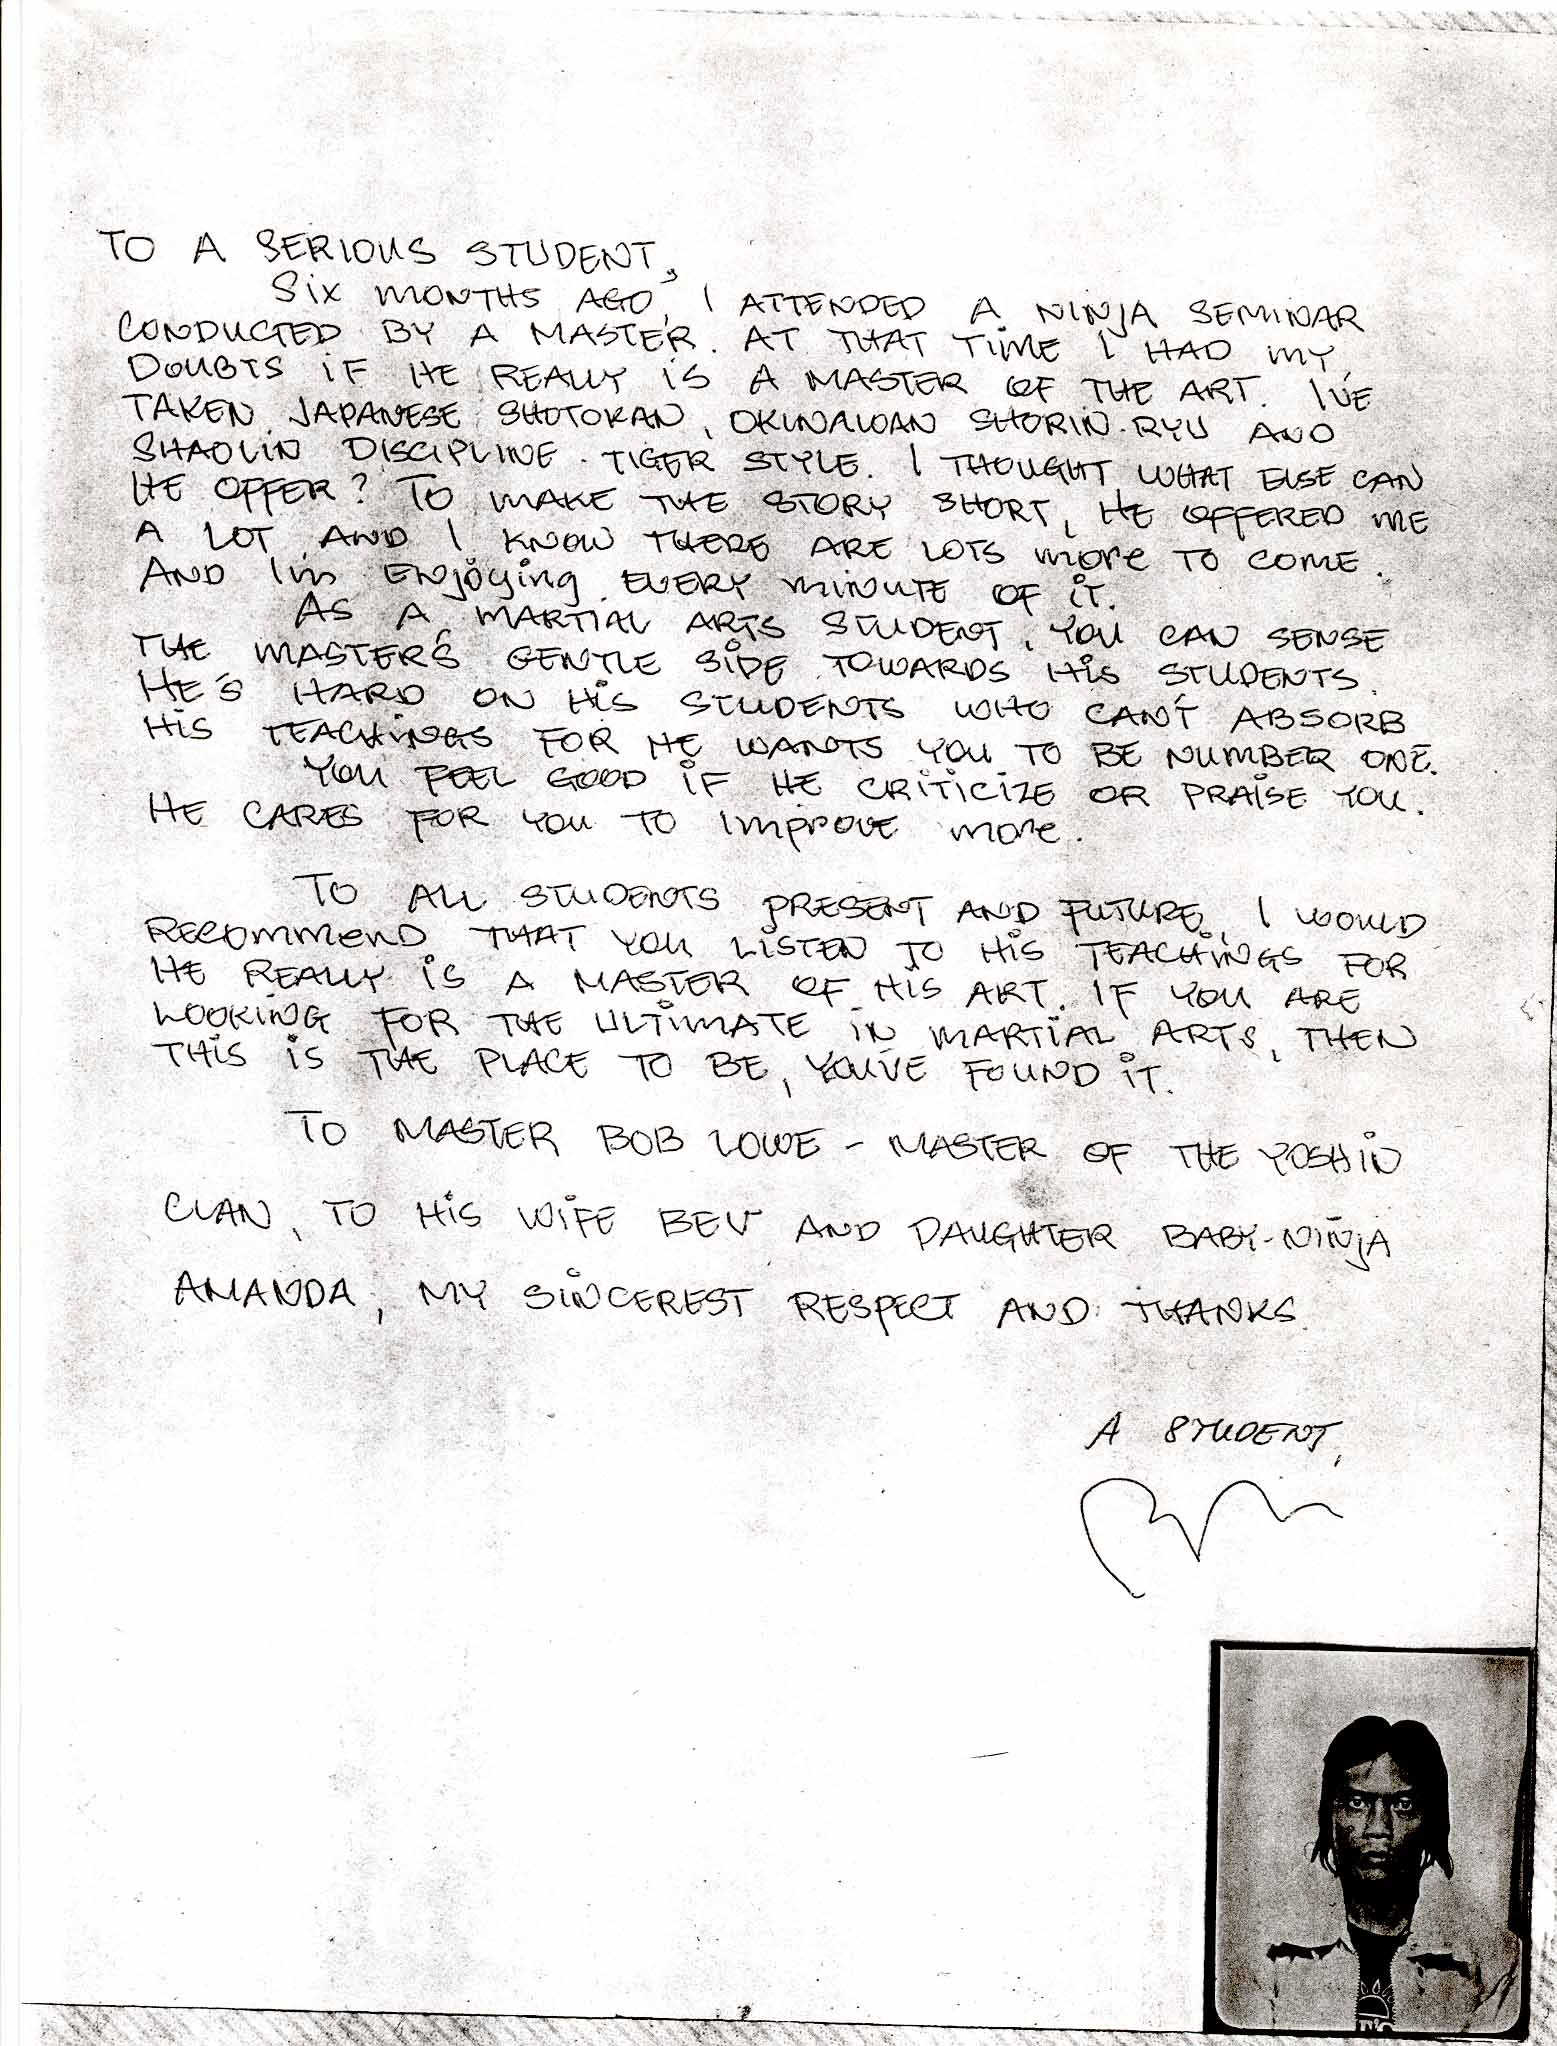 TO A SERIOUS STUDENT,
SIX MONTHS AGO, I ATTENDED A NINJA SEMINAR
CONDUCTED BY A MASTER. AT THAT TIME I HAD MY
DOUBTS IF HE REALLY IS A MASTER OF THE ART. I'VE
TAKEN JAPANESE SHOTOKAN, OKINAWAN SHORIN-RYU AND
SHAOLIN DISCIPLINE - TIGER STYLE. I THOUGHT WHAT ELSE CAN
HE OFFER? TO MAKE THE STORY SHORT, HE OFFERED ME
A LOT AND I KNOW THERE ARE LOTS MORE TO COME.
AND I'M ENJOYING EVERY MINUTE OF IT.
AS A MARTIAL ARTS STUDENT, YOU CAN SENSE
THE MASTER'S GENTLE SIDE TOWARDS HIS STUDENTS.
HE'S HARD ON HIS STUDENTS WHO CAN'T ABSORB
HIS TEACHINGS FOR HE WANTS YOU TO BE NUMBER ONE.
YOU FEEL GOOD IF HE CRITICIZE OR PRAISE YOU.
HE CARES FOR YOU TO IMPROVE MORE.
TO ALL STUDENTS PRESENT AND FUTURE, I WOULD
RECOMMEND THAT YOU LISTEN TO HIS TEACHINGS FOR
HE REALLY IS A MASTER OF HIS ART. IF YOU ARE
LOOKING FOR THE ULTIMATE IN MARTIAL ARTS, THEN
THIS IS THE PLACE TO BE, YOU'VE FOUND IT.
TO MASTER BOB LOWE - MASTER OF THE YOSHIN
CLAN, TO HIS WIFE BEV AND DAUGHTER BABY-NINJA
AMANDA, MY SINCEREST RESPECT AND THANKS.
A STUDENT,